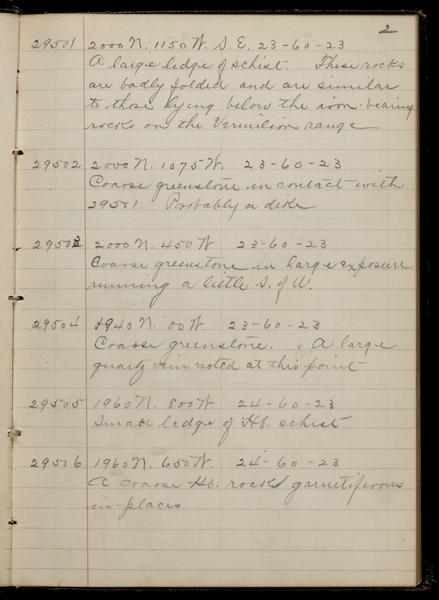 2
29501 2000 N. 1150 W. S. E. 23-60-23
A large ledge of schist These rocks
are badly folded and are similar
to those lying below the iron-bearing
rocks on the Vermilion range
29502 2000 N. 1075 W. 23-60-23
Coarse greenstone in contact with
29501. Probably a dike
29503 2000 N. 450 W 23-60-23
Coarse greenstone in large exposure
running a little S. of W.
29504 1940 N. 00 W. 23-60-23
Coarse greenstone. A large
quartz vein noted at this point
29505 1960 N. 800 W. 24-60-23
Small ledge of Hb. schist
29506 1960 N. 650 W. 24-60-23
A coarse Hb. rock garnetiferous
in places